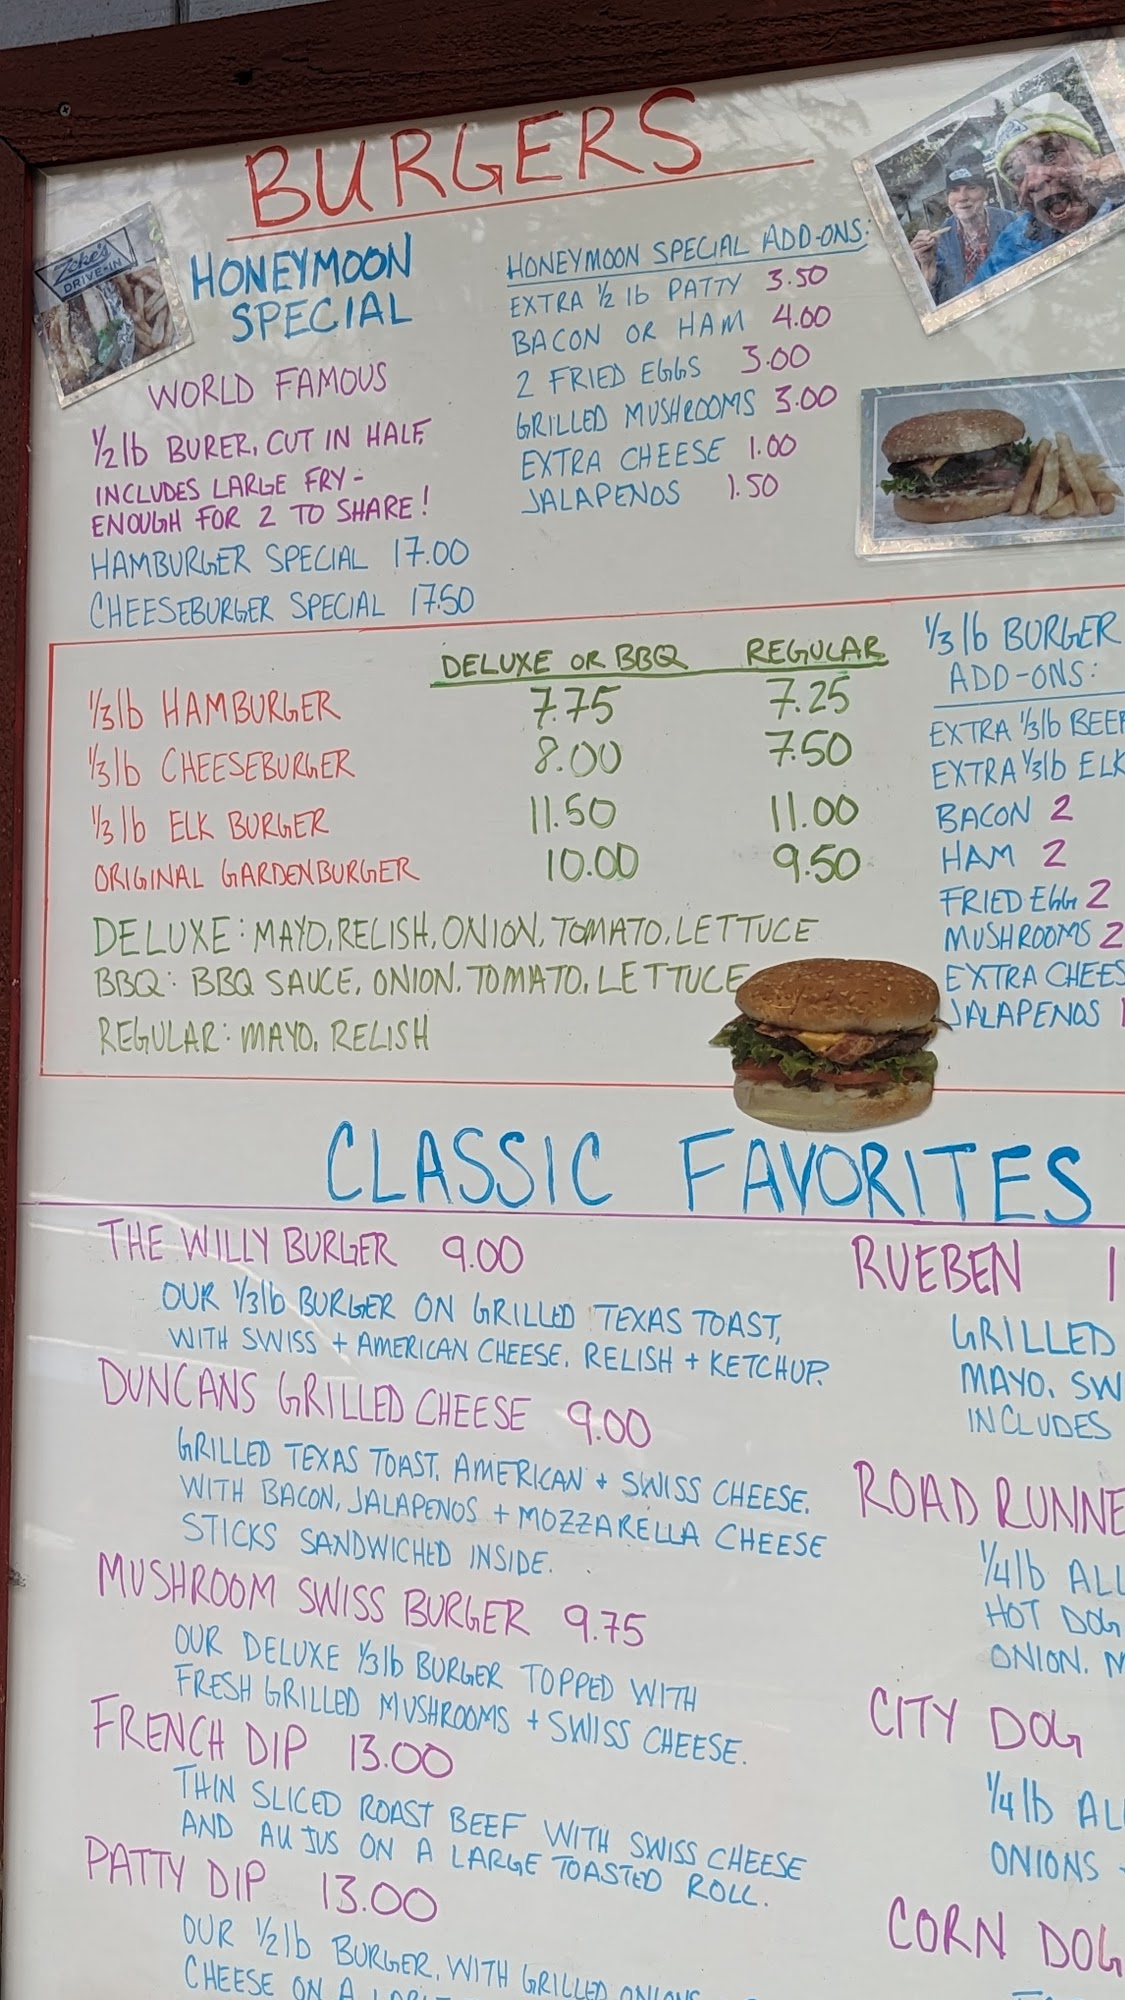 BURGERS
Zeke's
DRIVE-IN
HONEYMOON
SPECIAL
WORLD FAMOUS
1/2 lb BURER, CUT IN HALF,
INCLUDES LARGE FRY -
ENOUGH FOR 2 TO SHARE!
HAMBURGER SPECIAL 17.00
CHEESEBURGER SPECIAL 17.50
HONEYMOON SPECIAL ADD-ONS:
EXTRA 1/2 lb PATTY 3.50
BACON OR HAM 4.00
2 FRIED EGGS 3.00
GRILLED MUSHROOMS 3.00
EXTRA CHEESE 1.00
JALAPENOS 1.50
DELUXE OR BBQ REGULAR
1/3 lb HAMBURGER 7.75 7.25
1/3 lb CHEESEBURGER 8.00 7.50
1/3 lb ELK BURGER 11.50 11.00
ORIGINAL GARDENBURGER 10.00 9.50
DELUXE: MAYO, RELISH, ONION, TOMATO, LETTUCE
BBQ: BBQ SAUCE, ONION, TOMATO, LETTUCE
REGULAR: MAYO, RELISH
1/3 lb BURGER
ADD-ONS:
EXTRA 1/3 lb BEEF
EXTRA 1/3 lb ELK
BACON 2
HAM 2
FRIED EGG 2
MUSHROOMS 2
EXTRA CHEES
JALAPENOS 1
CLASSIC FAVORITES
THE WILLY BURGER 9.00
OUR 1/3 lb BURGER ON GRILLED TEXAS TOAST,
WITH SWISS + AMERICAN CHEESE, RELISH + KETCHUP.
DUNCANS GRILLED CHEESE 9.00
GRILLED TEXAS TOAST, AMERICAN + SWISS CHEESE,
WITH BACON, JALAPENOS + MOZZARELLA CHEESE
STICKS SANDWICHED INSIDE.
MUSHROOM SWISS BURGER 9.75
OUR DELUXE 1/3 lb BURGER TOPPED WITH
FRESH GRILLED MUSHROOMS + SWISS CHEESE.
FRENCH DIP 13.00
THIN SLICED ROAST BEEF WITH SWISS CHEESE
AND AU JUS ON A LARGE TOASTED ROLL.
PATTY DIP 13.00
OUR 1/2 lb BURGER, WITH GRILLED ONIONS
CHEESE ON A
RUEBEN 1
GRILLED
MAYO, SW
INCLUDES
ROAD RUNNE
1/4 lb ALL
HOT DOG
ONION, M
CITY DOG
1/4 lb AL
ONIONS
CORN DOG